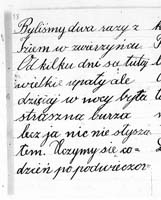 Byliśmy dwa razy z
Iziem w zwierzyńcu
Od kilku dni są tutaj
wielkie upały ale
dzisiaj w nocy była
straszna burza
lecz ja nic nie słysza
łem. Uczymy się co-
dzień po podwieczor